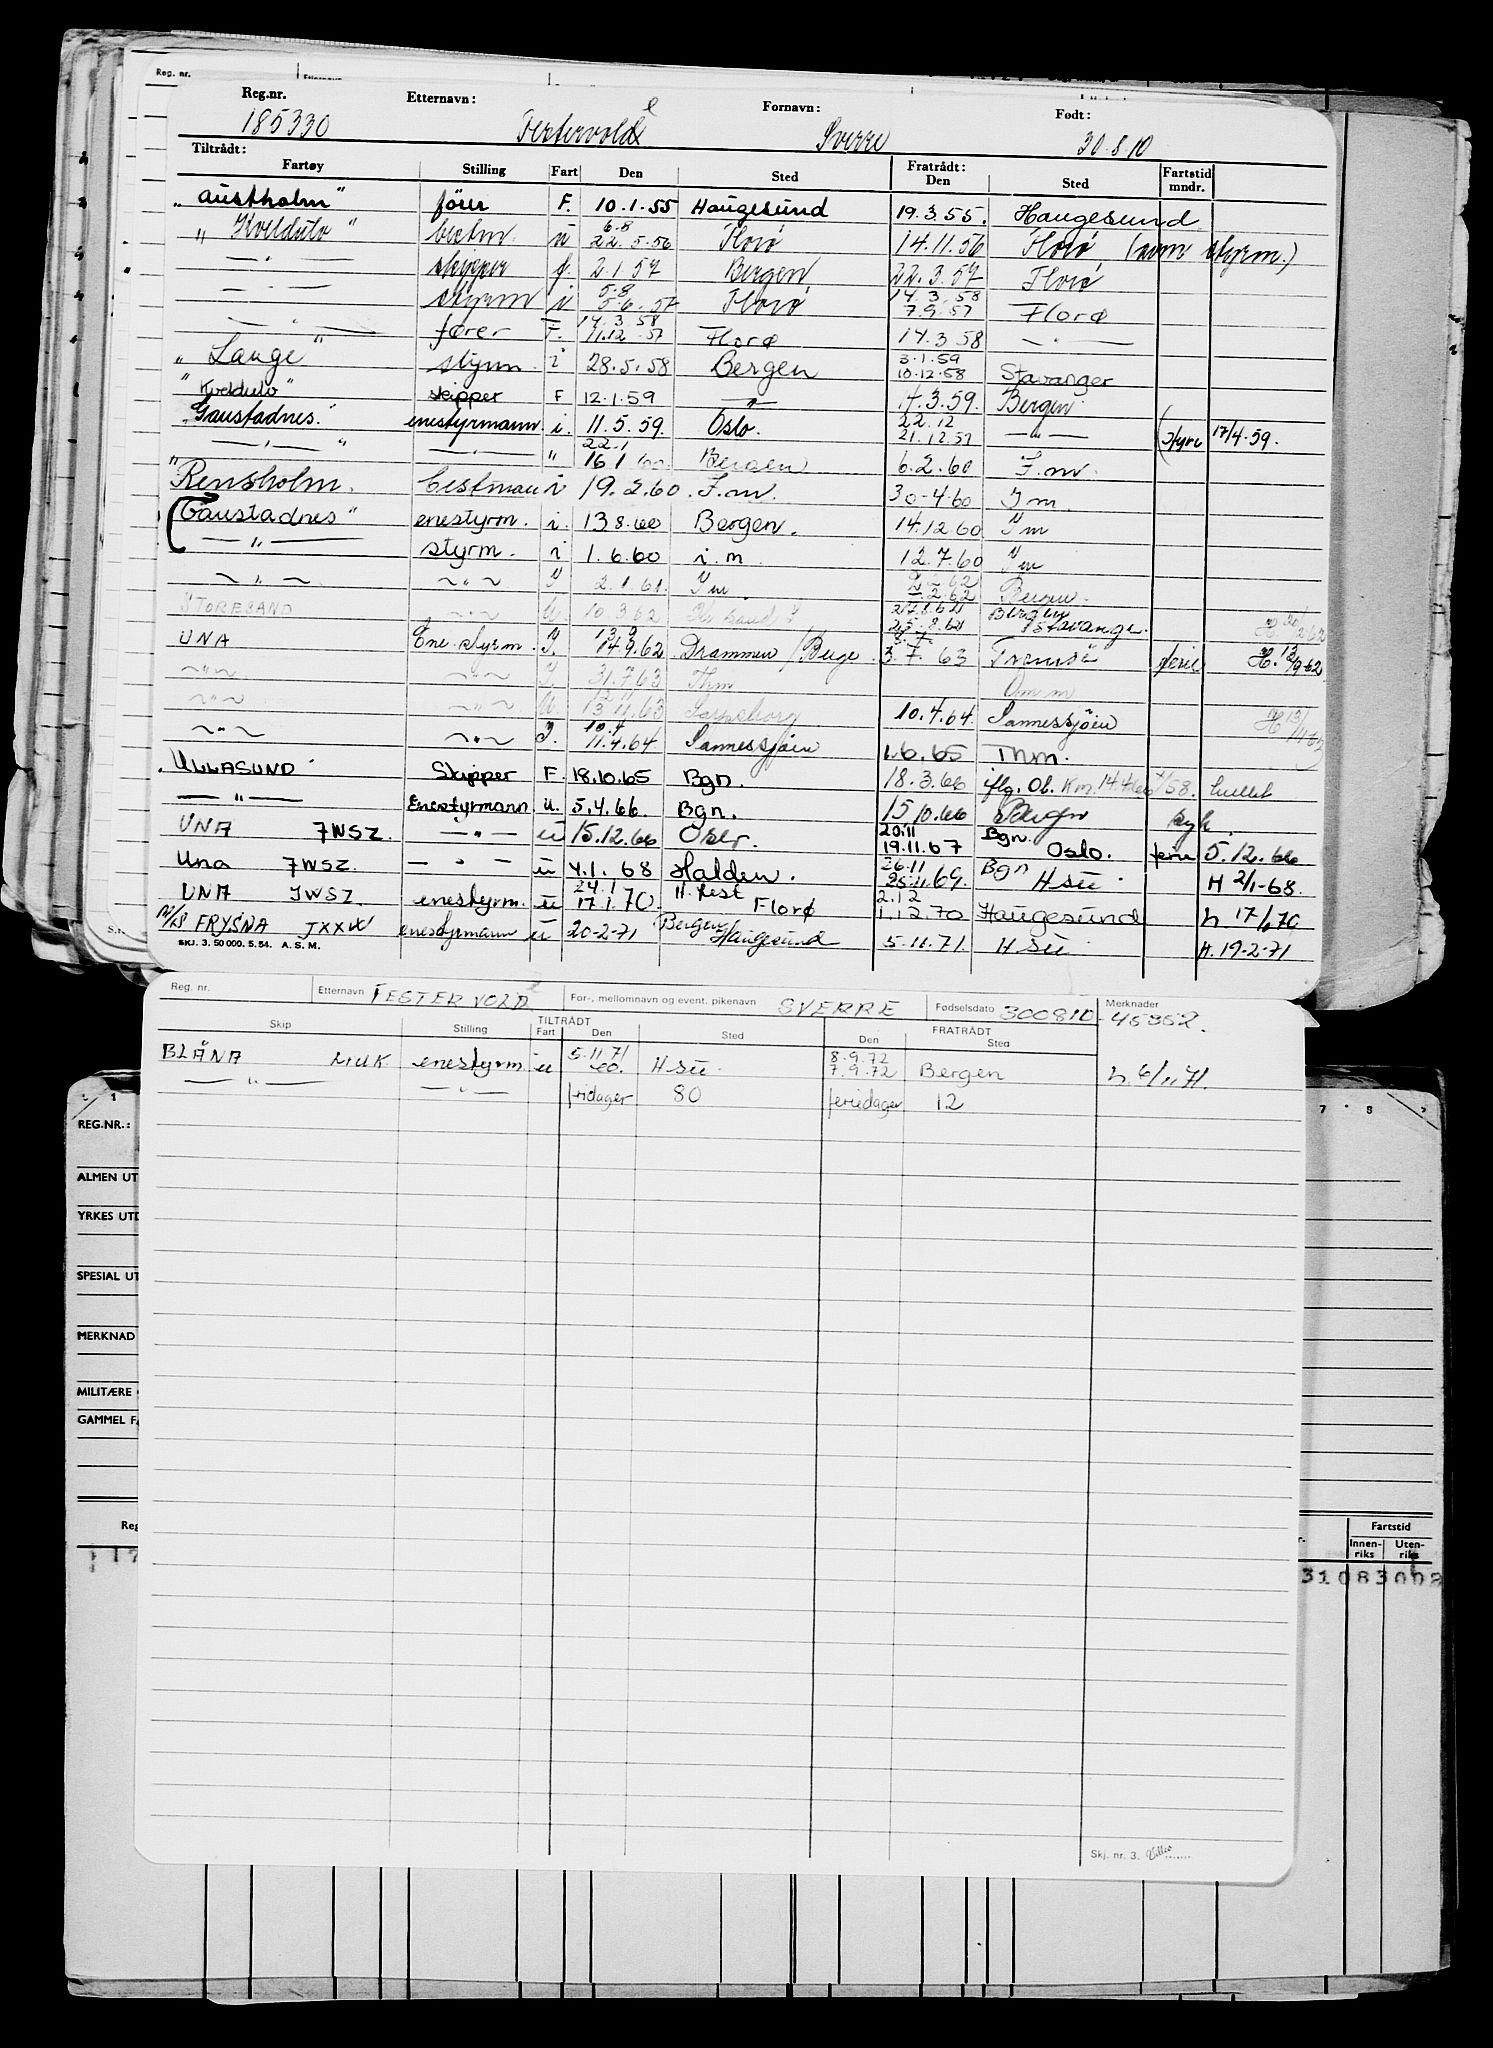 Reg.nr. Etternavn: Fornavn: Født:
185330 Festervold Sverre 30.8.10
Tiltrådt: Fratrådt: Fartstid
Fartøy Stilling Fart Den Sted Den Sted mndr.
"Austholm" förer F. 10.1.55 Haugesund 19.3.55. Haugesund
6.8
"Kveldulv" bestm. u 22.5.56 Florö 14.11.56 Florö (som styrm.)
— " — skipper f. 2.1.57 Bergen 22.3.57 Florö
5.8 14.3.58
— " — styrm i 5.6.57 Florö 7.9.57 Florø
14.3.58
— " — fører F. 11.12.57 Florø 14.3.58 — " —
3.1.59
"Lauge" styrm. i 28.5.58 Bergen 10.12.58 Stavanger
"Kveldulv" skipper F 12.1.59 — " — 14.3.59. Bergen
22.12
"Gaustadnes" enestyrmann. i. 11.5.59. Oslo. 21.12.59 — " — (Hyre 17/4.59.
22.1
— " — — " — " 16.1.60. Bergen 6.2.60 I.m.
"Rensholm. bestman i 19.2.60. I.m. 30-4-60 I m
Gaustadnes" enestyrm. i. 13.8.60 Bergen. 14.12.60 I m
— " — styrm. i 1.6.60 i.m 12.7.60 I m
— " — — " — I 2.1.61 I m 2.2.62 Bergen.
27.8.62 Bergen
STORESAND — " — U. 10.3.62 25.8.62 Stavanger.
13.9 3.7.
UNA Ene.styrm. I. 14.9.62 Drammen / Berge 3.7.63 Tromsö ferie H. 12/9-62
— " — — " — I. 31.7.63 Thm Om m
12.11
— " — — " — U. 13.11.63 Sarpsborg 10.4.64. Sannessjøen H 13/11 63
10.4
— " — — " — I. 11.4.64. Sannessjøen 1.6.65 Thm.
ULLASUND Skipper F. 18.10.65 Bgn. 18.3.66 iflg. Ob. Km. 14.4.66
— " — Enestyrmann. u. 5.4.66. Bgn. 15.10.66 Bergen syk.
20.11
UNA JWSZ. — " — u 15.12.66 Oslo. 19.11.67 Bgn. Oslo. ferie 5.12.66
26.11
Una JWSZ. — " — u 4.1.68 Halden. 25.11.69. Bgn H su. H 2/1-68.
24.1 2.12
UNA JWSZ. enestyrm. u 17.1.70. Florø 1.12.70 Haugesund h. 17-1/70
M/S FRYSNA JXXW enestyrmann u 20-2-71 Bergen Haugesund 5.11.71. H su H. 19-2-71
SKJ. 3. 50 000. 5. 54. A. S. M.
Reg. nr. Etternavn FESTERVOLD For-, mellomnavn og event. pikenavn SVERRE Fødselsdato 300810 Merknader 45352.
TILTRÅDT FRATRÅDT
Skip Stilling Fart Den Sted Den Sted
5.11.71 8.9.72
BLÅNA LIUK enestyrm u eo. H su. 7.9.72 Bergen h. 6/11 71.
— " — — " — fridager 80 feriedager 12
Skj. nr. 3.
REG.NR.:
ALMEN UT
YRKES UTD
SPESIAL UT
MERKNAD
MILITÆRE
GAMMEL F
Reg
Fartstid
Innen-riks Uten-riks
31083002